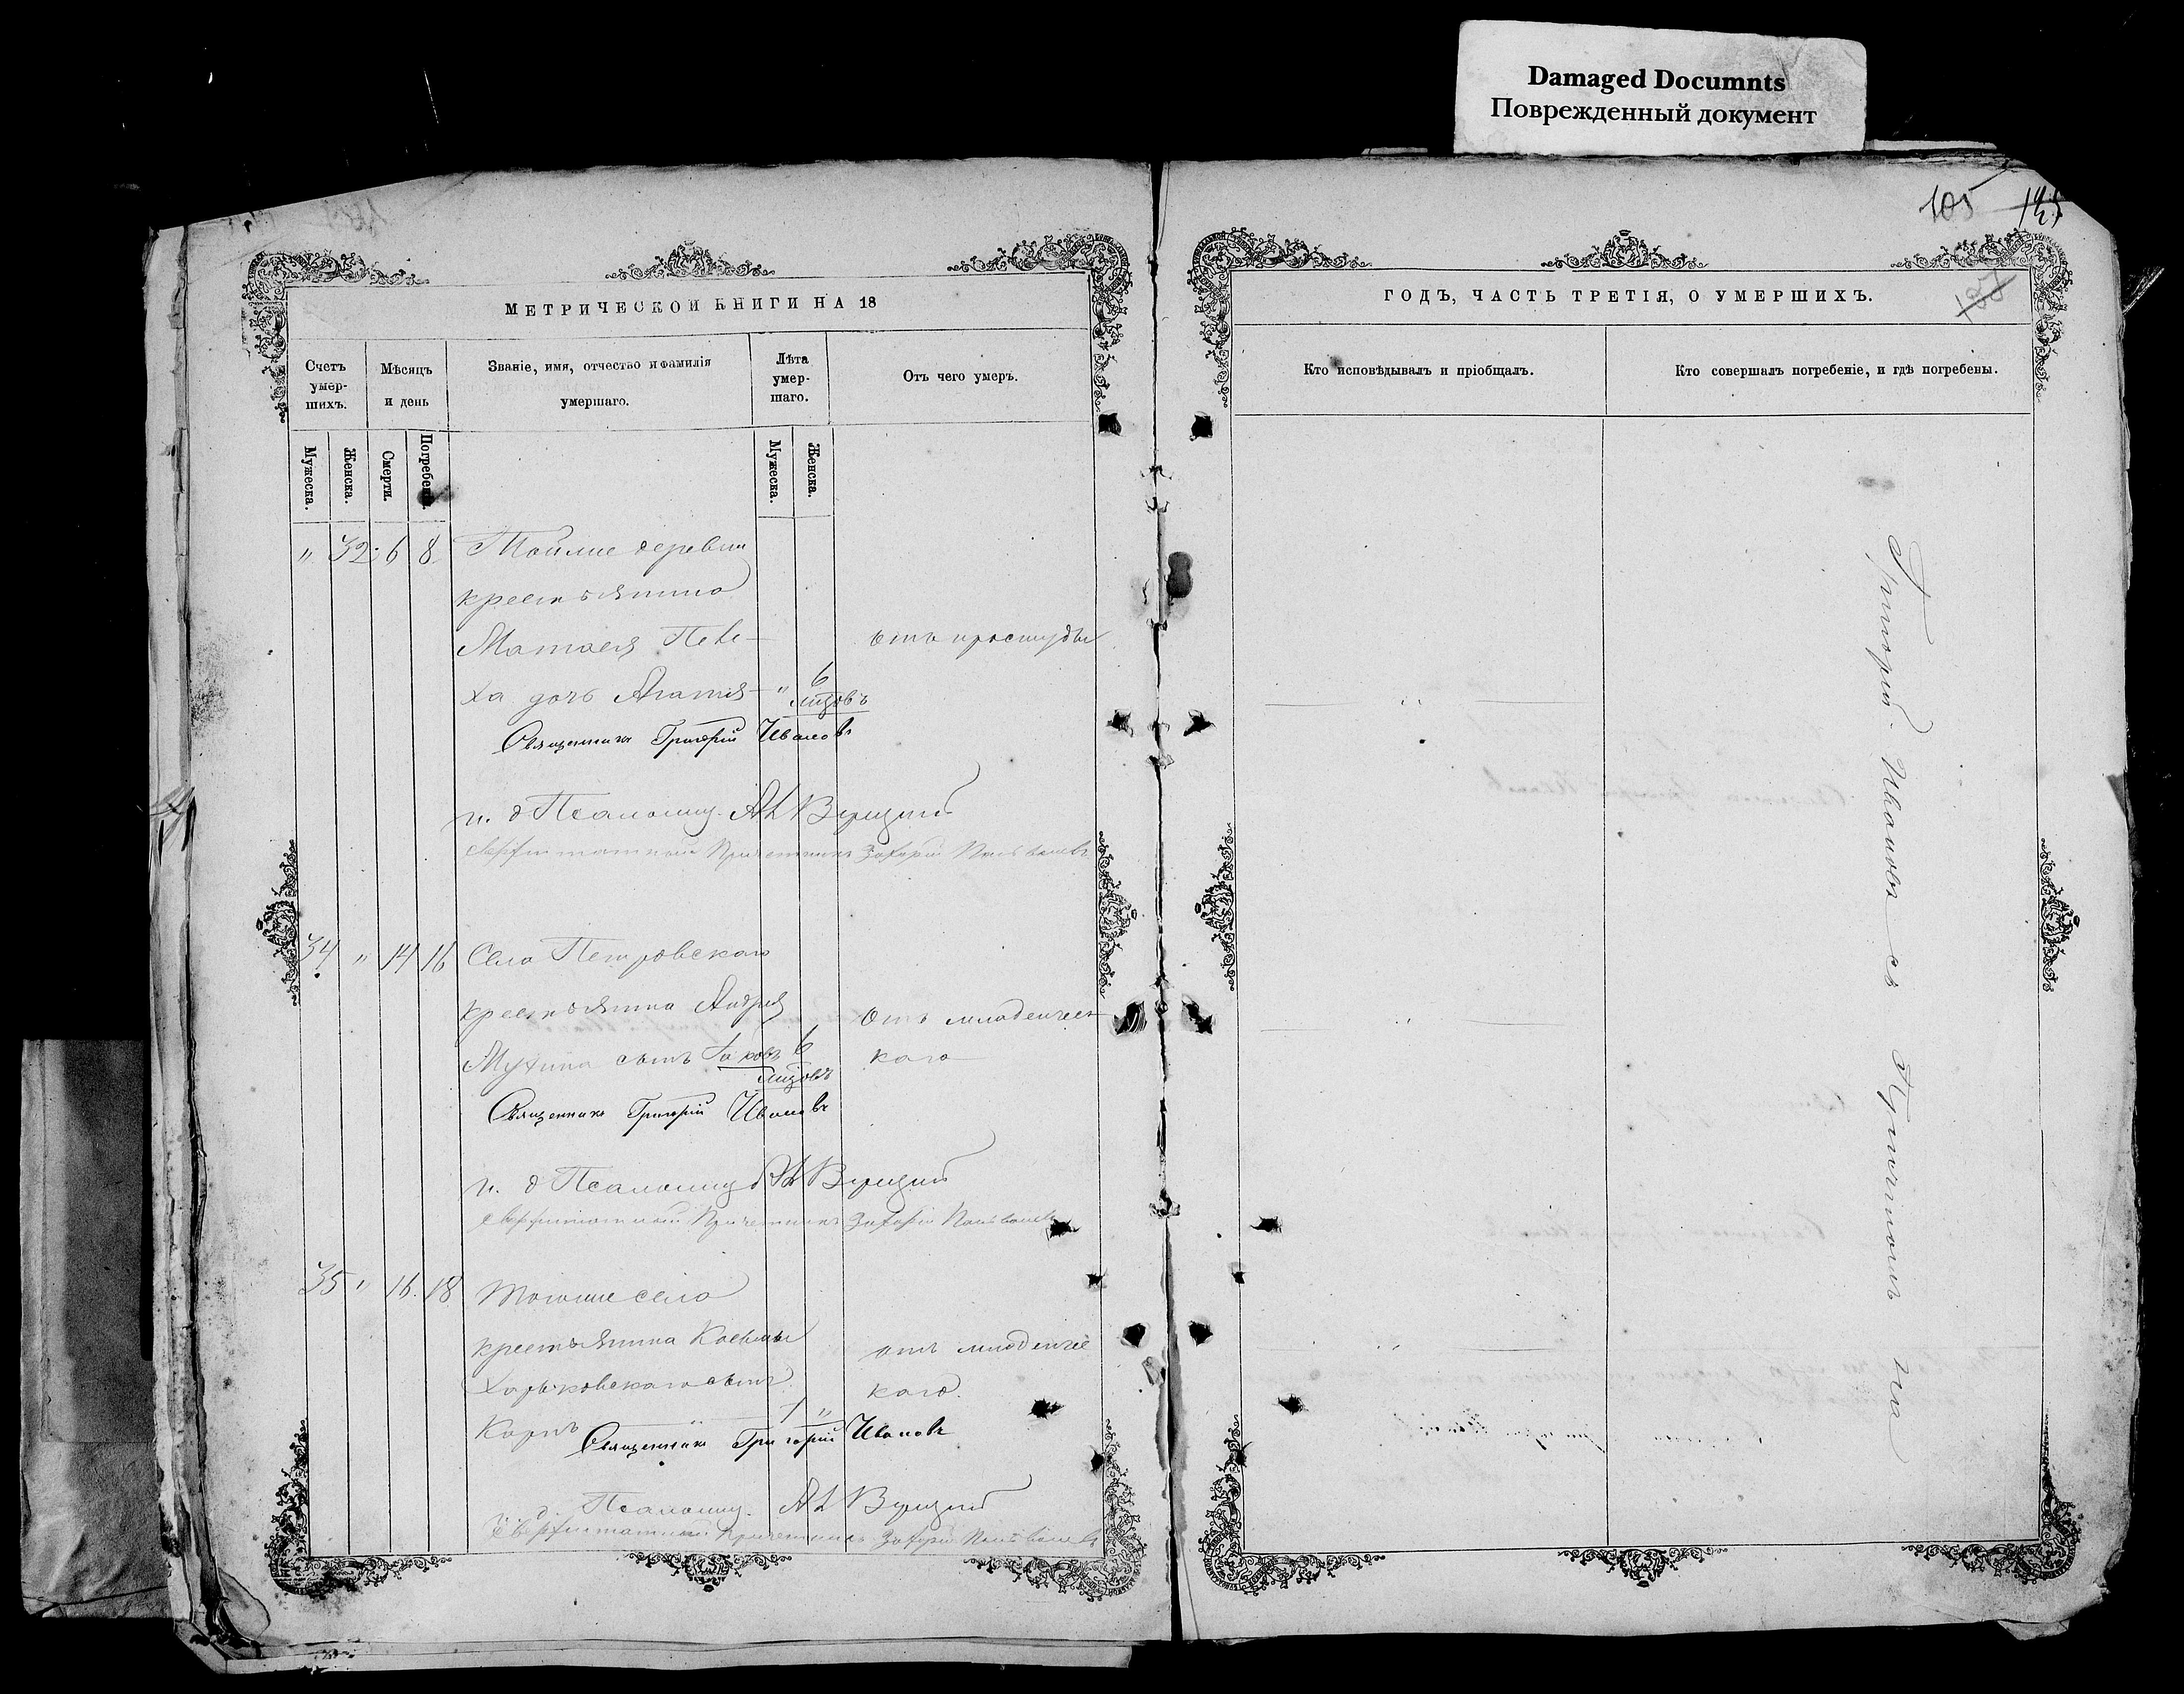 Damaged Documnts
Поврежденный документ
105 125
МЕТРИЧЕСКОЙ КНИГИ НА 18
Счетъ умершихъ.
Мѣсяцъ и день
Званіе, имя, отчество и фамилія умершаго.
Лѣта умершаго.
Отъ чего умеръ.
Мужеска.
Женска.
Смерти.
Погребен.
Мужеска.
Женска.
" 32 6 8 Тойже деревни
крестьянина
Матвея Пеле-
ха дочь Агатія " 6 мцовъ
отъ простуды
Священникъ Григорій Ивановъ
и. д Псаломщ.
Сверхштатный Причетникъ Захарій
34 " 14 16 Села Петровскаго
крестьянина Андрея
Мухина сынъ Яковъ 6 мцовъ
отъ младенчес
каго
Священникъ Григорій Ивановъ
и. д Псаломщ
Сверхштатный Причетникъ Захарій
35 " 16 18 Тогоже села
крестьянина Косьмы
Харьковскаго сынъ
Карпъ 1 "
отъ младенчес
каго.
Священникъ Григорій Ивановъ
и. д. Псаломщ.
Сверхштатный Причетникъ Захарій
ГОДЪ, ЧАСТЬ ТРЕТІЯ, О УМЕРШИХЪ.
Кто исповѣдывалъ и пріобщалъ.
Кто совершалъ погребеніе, и гдѣ погребены.
Григорій Ивановъ съ Причтомъ на